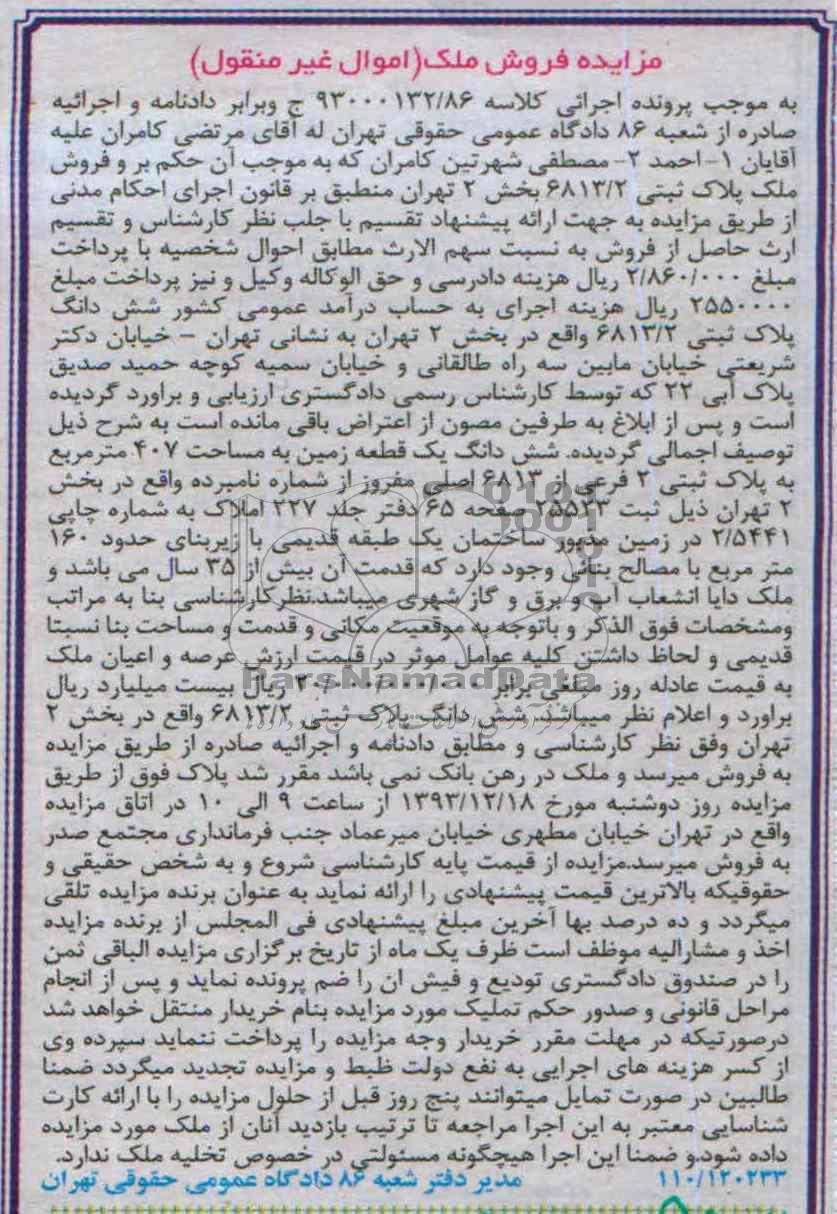 مزایده فروش ملک(اموال غیر منقول)
به موجب پرونده اجرائی کلاسه ۹۳۰۰۰۱۳۲/۸۶ ج وبرابر دادنامه و اجرائیه
صادره از شعبه ۸۶ دادگاه عمومی حقوقی تهران له آقای مرتضی کامران علیه
آقایان ۱-احمد ۲-مصطفی شهرتین کامران که به موجب آن حکم بر و فروش
ملک پلاک ثبتی ۶۸۱۳/۲ بخش ۲ تهران منطبق بر قانون اجرای احکام مدنی
از طریق مزایده به جهت ارائه پیشنهاد تقسیم با جلب نظر کارشناس و تقسیم
ارث حاصل از فروش به نسبت سهم الارث مطابق احوال شخصیه با پرداخت
مبلغ ۲/۸۶۰/۰۰۰ ریال هزینه دادرسی و حق الوکاله وکیل و نیز پرداخت مبلغ
۲۵۵۰۰۰۰ ریال هزینه اجرای به حساب درآمد عمومی کشور شش دانگ
پلاک ثبتی ۶۸۱۳/۲ واقع در بخش ۲ تهران به نشانی تهران - خیابان دکتر
شریعتی خیابان مابین سه راه طالقانی و خیابان سمیه کوچه حمید صدیق
پلاک آبی ۲۲ که توسط کارشناس رسمی دادگستری ارزیابی و براورد گردیده
است و پس از ابلاغ به طرفین مصون از اعتراض باقی مانده است به شرح ذیل
توصیف اجمالی گردیده. شش دانگ یک قطعه زمین به مساحت ۴۰۷ مترمربع
به پلاک ثبتی ۲ فرعی از ۶۸۱۳ اصلی مفروز از شماره نامبرده واقع در بخش
۲ تهران ذیل ثبت ۲۵۵۲۳ صفحه ۶۵ دفتر جلد ۲۲۷ املاک به شماره چاپی
۲/۵۴۴۱ در زمین مذبور ساختمان یک طبقه قدیمی با زیربنای حدود ۱۶۰
متر مربع با مصالح بنائی وجود دارد که قدمت آن بیش از ۳۵ سال می باشد و
ملک دایا انشعاب آب و برق و گاز شهری میباشد.نظرکارشناسی بنا به مراتب
ومشخصات فوق الذکر و باتوجه به موقعیت مکانی و قدمت و مساحت بنا نسبتا
قدیمی و لحاظ داشتن کلیه عوامل موثر در قیمت ارزش عرصه و اعیان ملک
به قیمت عادله روز مبلغی برابر ۲۰/۰۰۰/۰۰۰/۰۰۰ ریال بیست میلیارد ریال
براورد و اعلام نظر میباشد. شش دانگ پلاک ثبتی ۶۸۱۳/۲ واقع در بخش ۲
تهران وفق نظر کارشناسی و مطابق دادنامه و اجرائیه صادره از طریق مزایده
به فروش میرسد و ملک در رهن بانک نمی باشد مقرر شد پلاک فوق از طریق
مزایده روز دوشنبه مورخ ۱۳۹۳/۱۲/۱۸ از ساعت ۹ الی ۱۰ در اتاق مزایده
واقع در تهران خیابان مطهری خیابان میرعماد جنب فرمانداری مجتمع صدر
به فروش میرسد.مزایده از قیمت پایه کارشناسی شروع و به شخص حقیقی و
حقوقیکه بالاترین قیمت پیشنهادی را ارائه نماید به عنوان برنده مزایده تلقی
میگردد و ده درصد بها آخرین مبلغ پیشنهادی فی المجلس از برنده مزایده
اخذ و مشارالیه موظف است ظرف یک ماه از تاریخ برگزاری مزایده الباقی ثمن
را در صندوق دادگستری تودیع و فیش ان را ضم پرونده نماید و پس از انجام
مراحل قانونی و صدور حکم تملیک مورد مزایده بنام خریدار منتقل خواهد شد
درصورتیکه در مهلت مقرر خریدار وجه مزایده را پرداخت ننماید سپرده وی
از کسر هزینه های اجرایی به نفع دولت ظبط و مزایده تجدید میگردد ضمنا
طالبین در صورت تمایل میتوانند پنج روز قبل از حلول مزایده را با ارائه کارت
شناسایی معتبر به این اجرا مراجعه تا ترتیب بازدید آنان از ملک مورد مزایده
داده شود.و ضمنا این اجرا هیچگونه مسئولتی در خصوص تخلیه ملک ندارد.
۱۱۰/۱۲۰۲۳۳ مدیر دفتر شعبه ۸۶ دادگاه عمومی حقوقی تهران
ParsNamadData